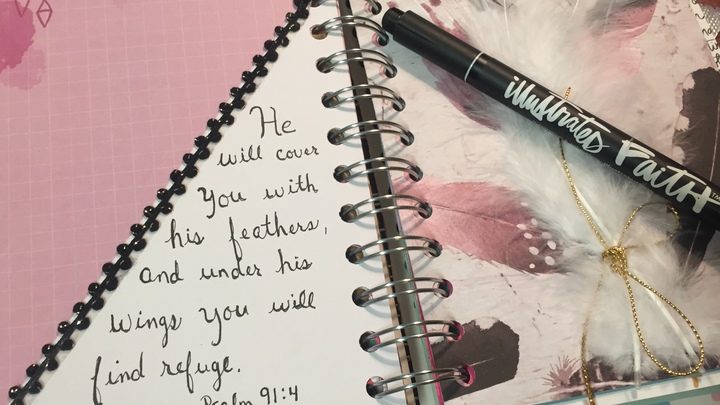 He
will cover
you with
his feathers,
and under his
wings you will
find refuge.
Psalm 91:4
illustrated Faith